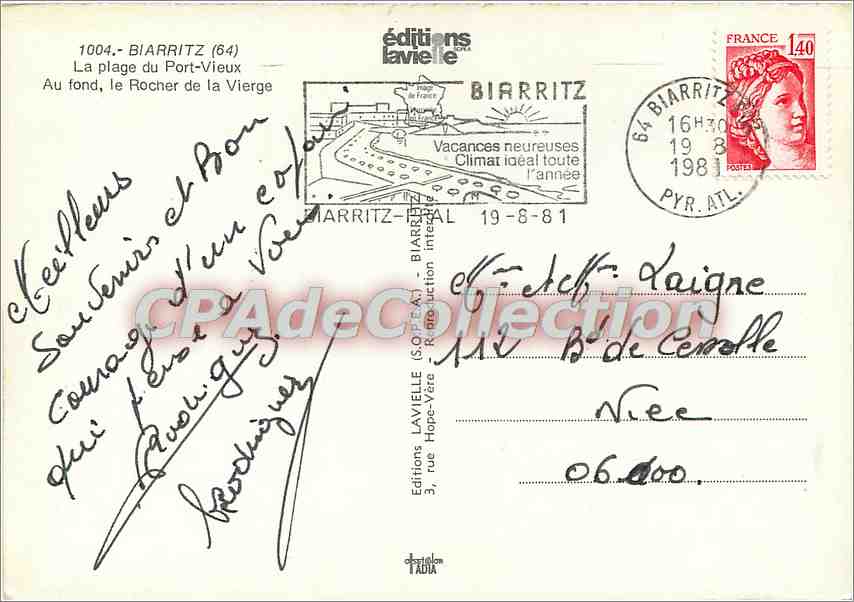 1004.- BIARRITZ (64)
La plage du Port-Vieux
Au fond, le Rocher de la Vierge
éditions
lavielle
SOPEA
image
de France
BIARRITZ
Vacances heureuses
Climat idéal toute
l'année
BIARRITZ-PPAL 19-8-81
FRANCE
1,40
POSTES
64 BIARRITZ PPAL
16H30
19 8
1981
PYR. ATL.
Meilleurs
Souvenirs et Bon
Courage d'un copain
qui pense a Vous.
Rodriguez
Rodriguez
Editions LAVIELLE (S.O.P.E.A.) - BIARRITZ
3, rue Hope-Vère - Reproduction interdite
Mme Laigne
112 Bd de Cessolle
Nice
06000.
CPAdeCollection